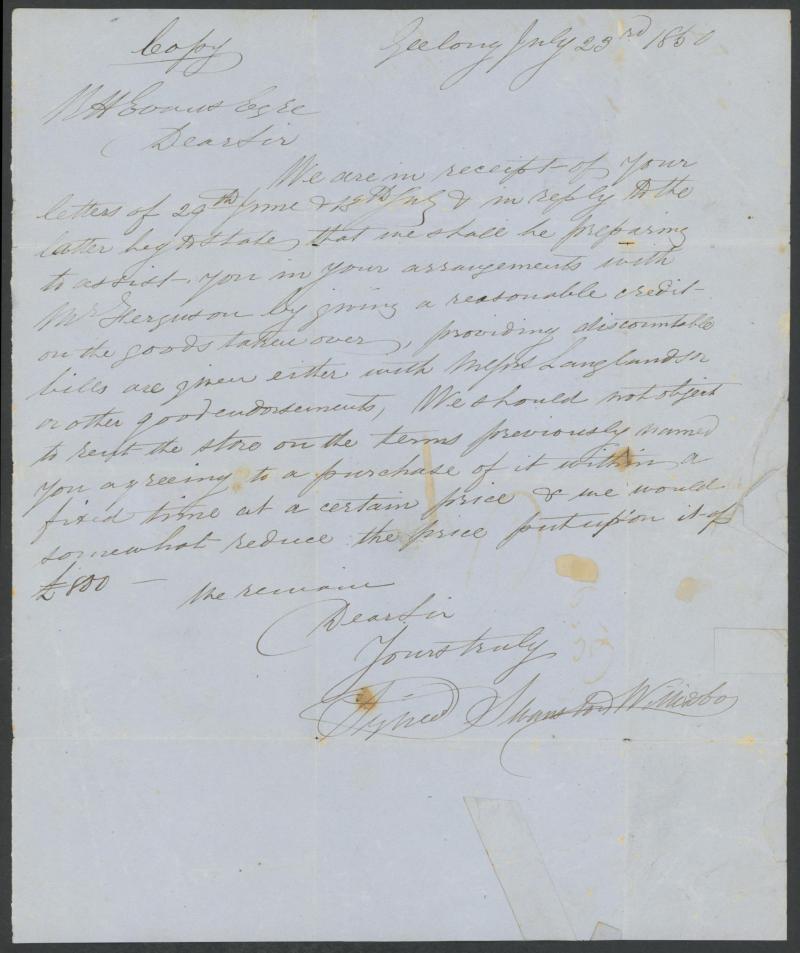 Copy
Geelong July 23rd 1850
W H Evans Esqre
Dear Sir
We are in receipt of your
letters of 29th June & July & in reply to the
latter beg to state, that we shall be preparing
to assist you in your arrangements with
Mr Ferguson by giving a reasonable credit
on the goods taken over, providing discountable
bills are given either with Messrs Langlands or
or other good endorsements, We should not object
to rent the store on the terms previously named
you agreeing to a purchase of it within a
fixed time at a certain price & we would
somewhat reduce the price put upon it of
£800 — We remain
Dear Sir
Yours truly
Signed